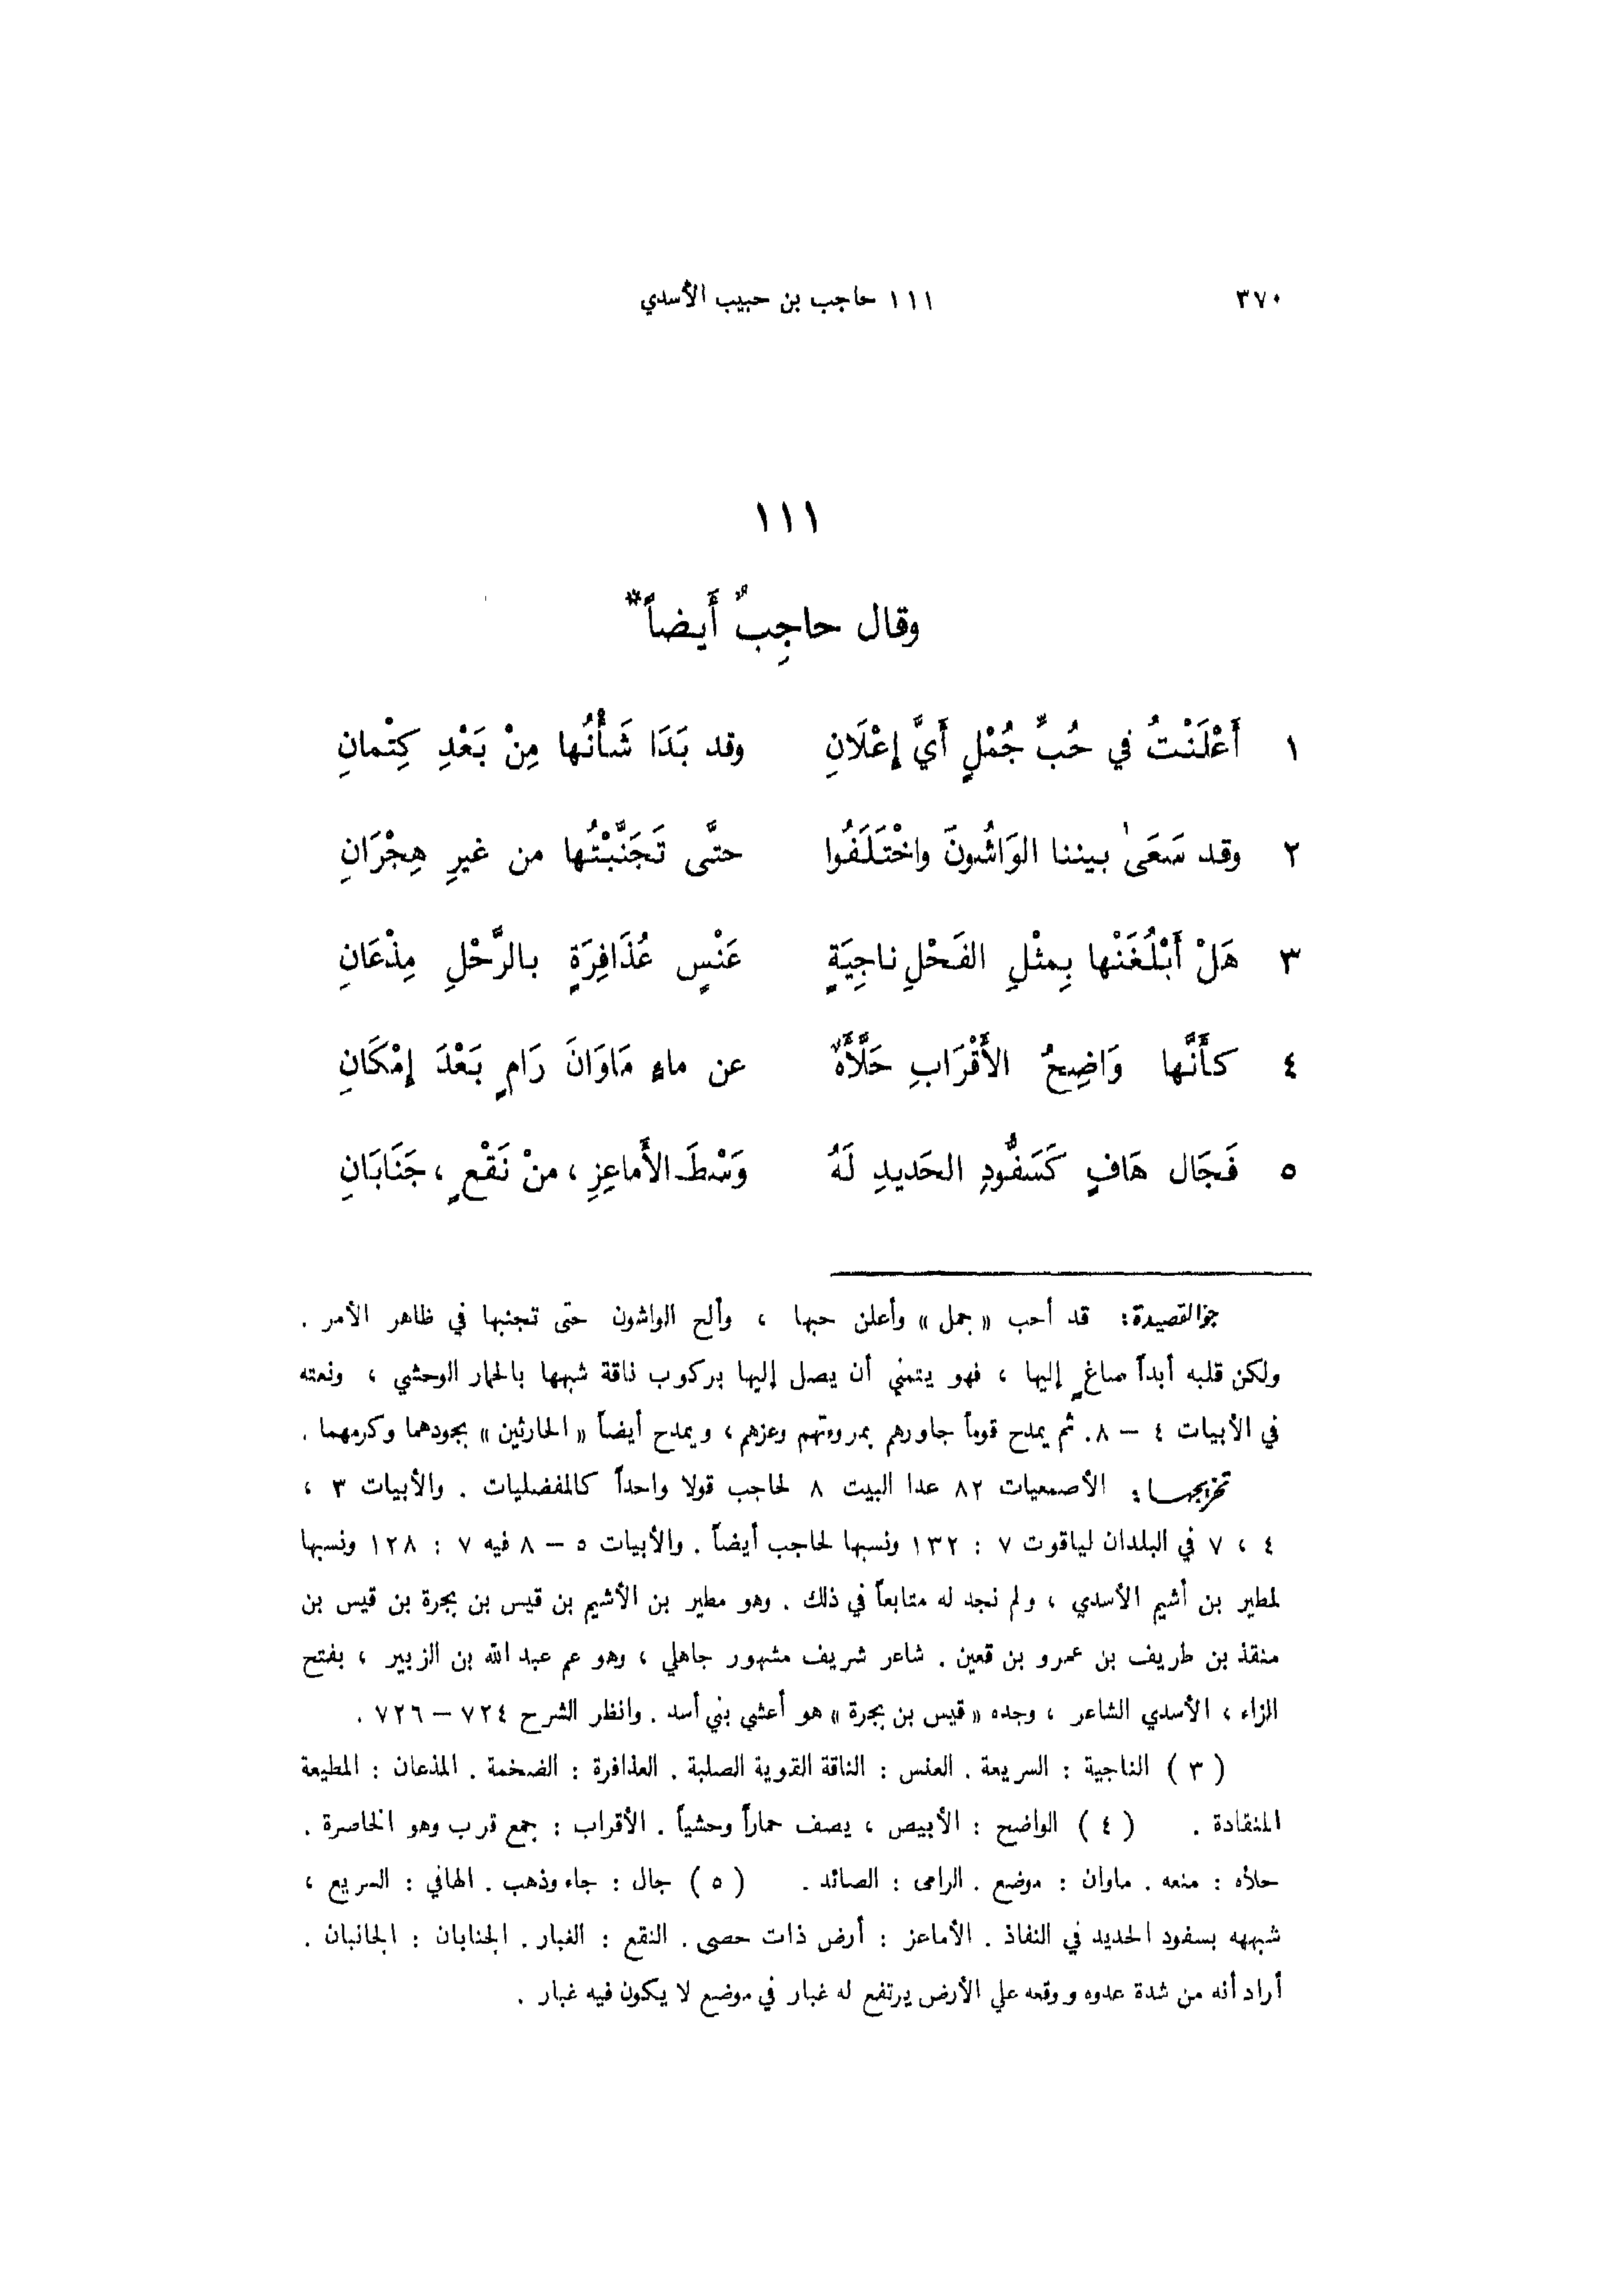 ٣٧٠ ١١١ حاجب بن حبيب الأسدي
١١١
وقال حاجِبٌ أَيضاً*
١ أَعْلَنْتُ في حُبِّ جُمْلٍ أَيَّ إِعْلَانِ وقد بَدَا شَأْنُها مِنْ بَعْدِ كِتْمانِ
٢ وقد سَعَىٰ بيننا الوَاشُونَ واخْتَلَفُوا حتَّى تَجَنَّبْتُها من غيرِ هِجْرَانِ
٣ هَلْ أَبْلُغَنْها بِمثْلِ الفَحْلِ ناجِيَةٍ عَنْسٍ عُذَافِرَةٍ بالرَّحْلِ مِذْعَانِ
٤ كأَنَّها وَاضِحُ الأَقْرَابِ حَلَّأَهُ عن ماءِ مَاوَانَ رَامٍ بَعْدَ إِمْكَانِ
٥ فَجَال هَافٍ كَسَفُّودِ الحَديدِ لَهُ وَسْطَ الأَماعِزِ، منْ نَقْعٍ، جَنَابَانِ
جو القصيدة: قد أحب «جمل» وأعلن حبها ، وألح الواشون حتى تجنبها في ظاهر الأمر .
ولكن قلبه أبداً صاغٍ إليها ، فهو يتمنى أن يصل إليها بركوب ناقة شبهها بالحمار الوحشي ، ونعته
في الأبيات ٤ – ٨. ثم يمدح قوماً جاورهم بمروءتهم وعزهم، ويمدح أيضاً «الحارثين» بجودهما وكرمهما .
تخريجها: الأصمعيات ٨٢ عدا البيت ٨ لحاجب قولا واحداً كالمفضليات . والأبيات ٣ ،
٤ ، ٧ في البلدان لياقوت ٧ : ١٣٢ ونسبها لحاجب أيضاً . والأبيات ٥ – ٨ فيه ٧ : ١٢٨ ونسبها
لمطير بن أشيم الأسدي ، ولم نجد له متابعاً في ذلك . وهو مطير بن الأشيم بن قيس بن بجرة بن قيس بن
منقذ بن طريف بن عمرو بن قعين . شاعر شريف مشهور جاهلي ، وهو عم عبد الله بن الزبير ، بفتح
الزاء ، الأسدي الشاعر ، وجده «قيس بن بجرة» هو أعشى بني أسد . وانظر الشرح ٧٢٤ – ٧٢٦ .
(٣) الناجية : السريعة . العنس : الناقة القوية الصلبة . العذافرة : الضخمة . المذعان : المطيعة
المنقادة . (٤) الواضح : الأبيض ، يصف حماراً وحشياً . الأقراب : جمع قرب وهو الخاصرة .
حلأه : منعه . ماوان : موضع . الرامى : الصائد . (٥) جال : جاء وذهب . الهافي : السريع ،
شبهه بسفود الحديد في النفاذ . الأماعز : أرض ذات حصى . النقع : الغبار . الجنابان : الجانبان .
أراد أنه من شدة عدوه ووقعه على الأرض يرتفع له غبار في موضع لا يكون فيه غبار .